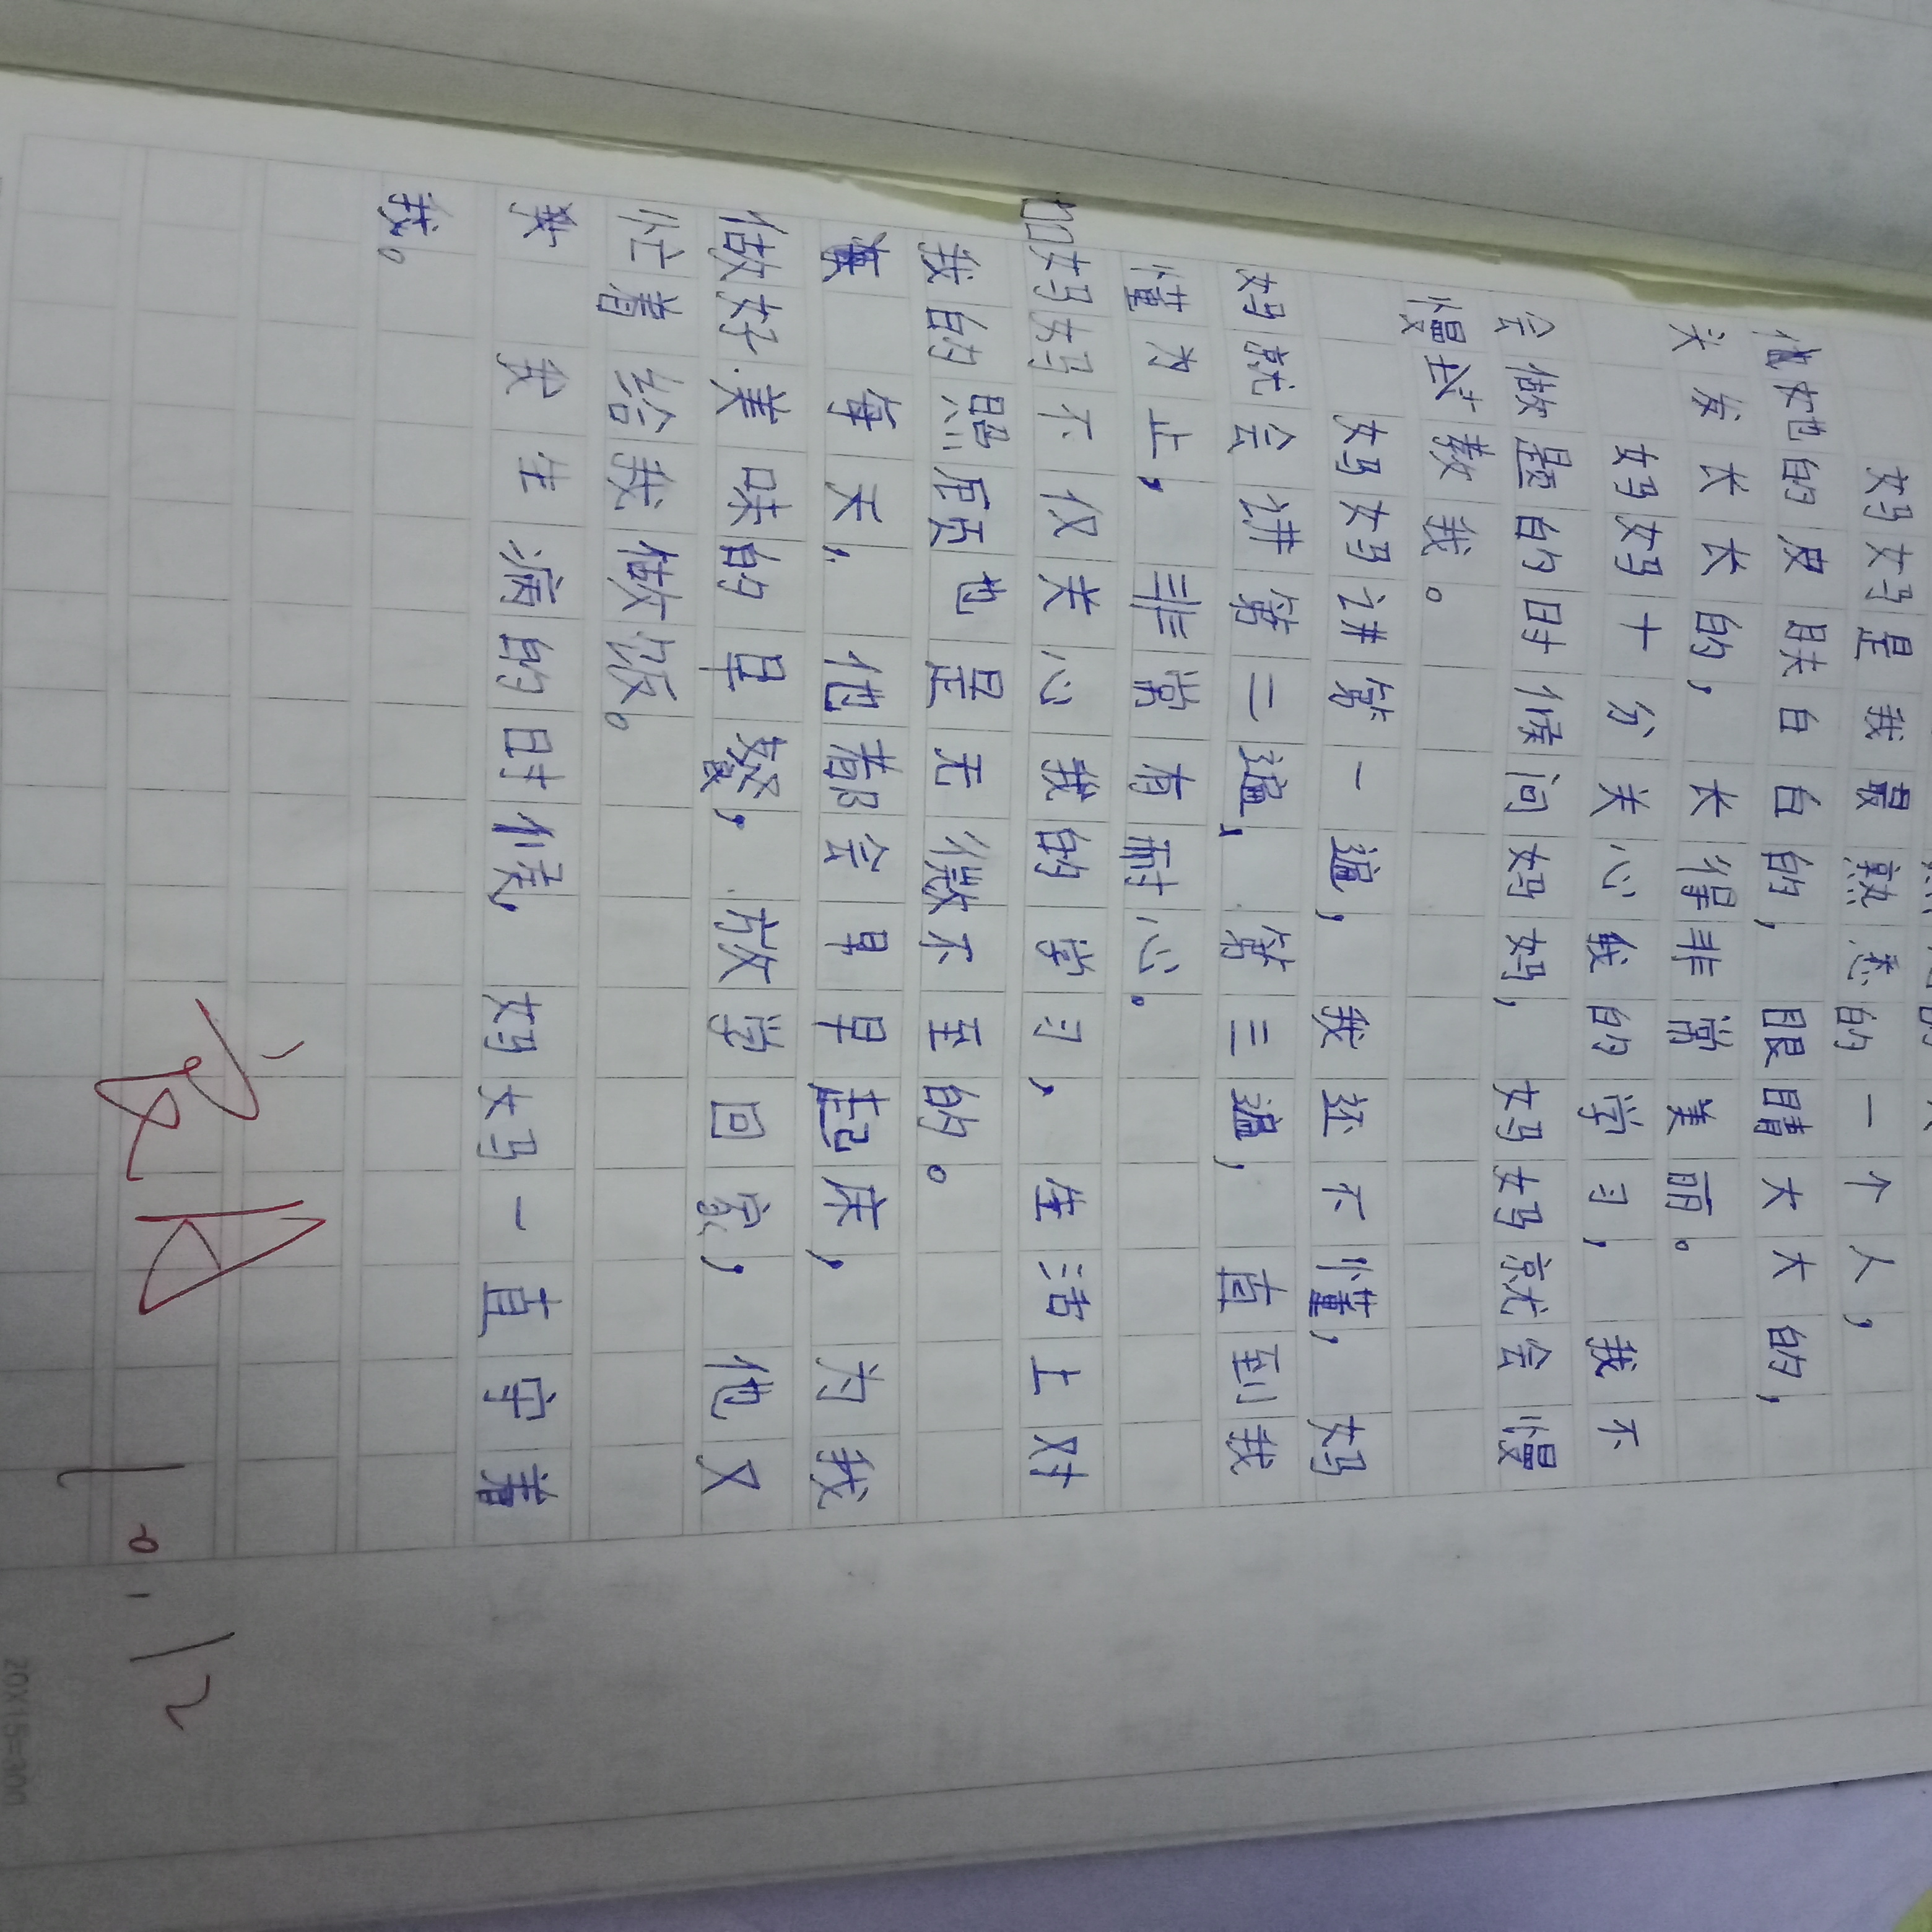 妈妈是我最熟悉的一个人，
他她的皮肤白白的，眼睛大大的，
头发长长的，长得非常美丽。
妈妈十分关心我的学习，我不
会做题的时候问妈妈，妈妈就会慢
慢教我。
妈妈讲第一遍，我还不懂，妈
妈就会讲第二遍，第三遍，直到我
懂为止，非常有耐心。
妈妈不仅关心我的学习，生活上对
我的照顾也是无微不至的。
每天，他都会早早起床，为我
做好美味的早餐，放学回家，他又
忙着给我做饭。
我生病的时候，妈妈一直守着
我。
阅
10.12
20X15=300